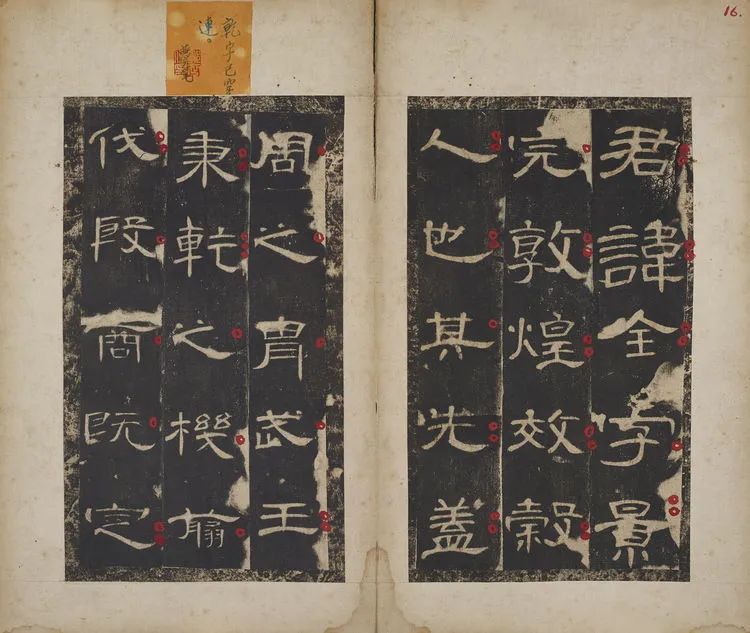 16.
君諱全字景
完敦煌效穀
人也其先蓋
乾字已穿
連
周之胄武王
秉乾之機翦
伐殷商既定